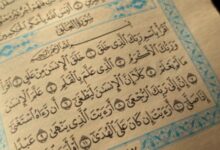 سورة العلق
بسم الله الرحمن الرحيم
اقرأ باسم ربك الذي خلق خلق الإنسن من علق
اقرأ وربك الأكرم الذي علم بالقلم علم الإنسن
ما لم يعلم كلا إن الإنسن ليطغى أن رءاه استغنى
إن إلى ربك الرجعى أرءيت الذي ينهى عبدا
إذا صلى أرءيت إن كان على الهدى